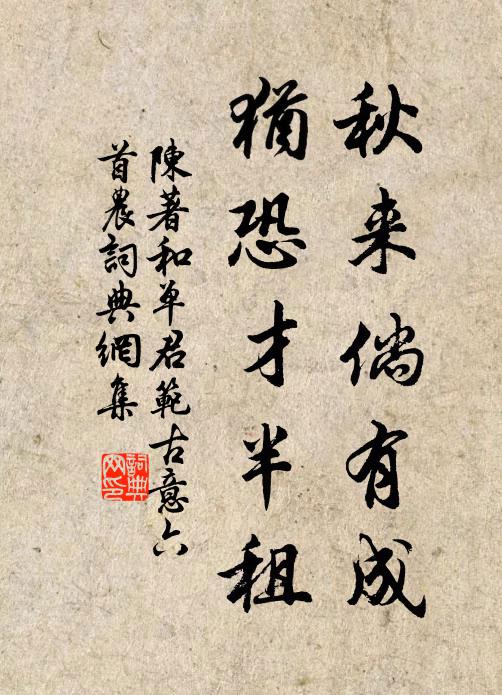 秋来倘有成
犹恐才半租
陳著和单君範古意六
首農詞典網集
詞典
网印